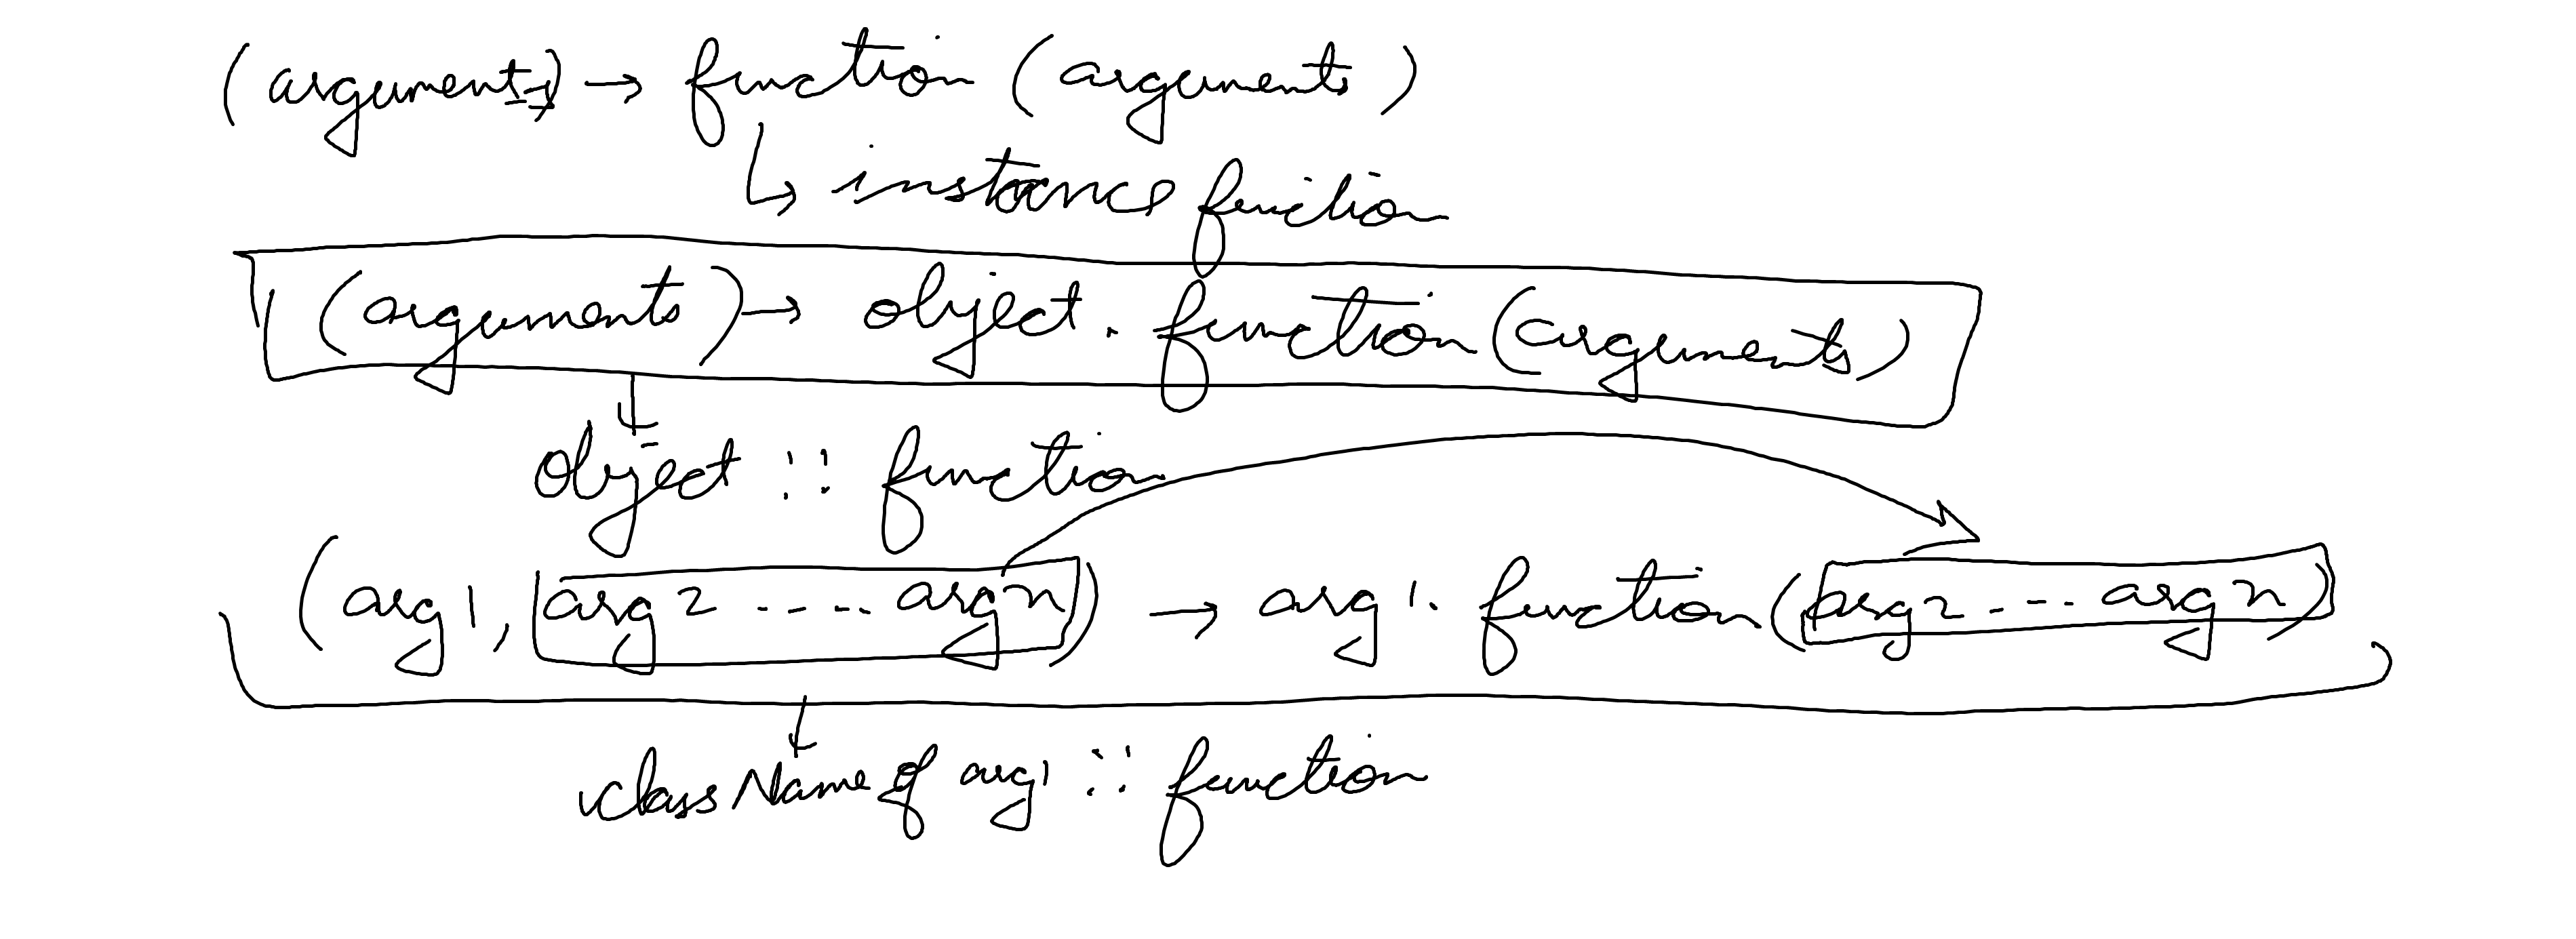 (arguments) → function (arguments)
↳ instance function
(arguments) → object . function (arguments)
object :: function
(arg1, arg2 ..... argn) → arg1. function (arg2 .... argn)
class Name of arg1 :: function